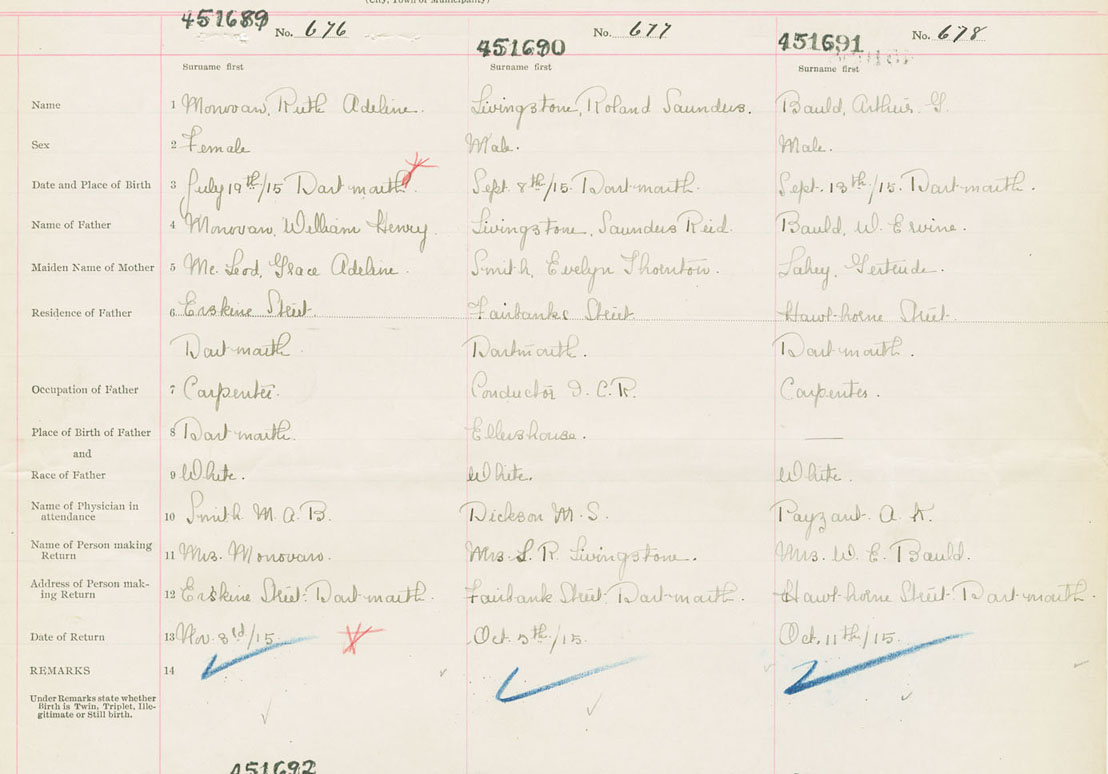 (City, Town or Municipality)
451689 No. 676 451690 No. 677 451691 No. 678
Surname first Surname first Surname first
Name 1 Monovan, Ruth Adeline. Livingstone, Roland Saunders. Bauld, Arthur G.
Sex 2 Female Male. Male.
Date and Place of Birth 3 July 19th/15 Dartmouth. Sept. 8th/15. Dartmouth. Sept. 13th/15. Dartmouth.
Name of Father 4 Monovan, William Henry Livingstone, Saunders Reid. Bauld, W. Ervine.
Maiden Name of Mother 5 Mc. Leod, Grace Adeline. Smith, Evelyn Thornton. Lahey, Gertrude.
Residence of Father 6 Erskine Street. Fairbanks Street. Hawthorne Street.
Dartmouth. Dartmouth. Dartmouth.
Occupation of Father 7 Carpenter. Conductor I. C. R. Carpenter.
Place of Birth of Father 8 Dartmouth. Ellershouse. —
and
Race of Father 9 White. White. White.
Name of Physician in
attendance 10 Smith M. A. B. Dickson M. S. Payzant A. K.
Name of Person making
Return 11 Mrs. Monovan. Mrs S. R. Livingstone. Mrs. W. E. Bauld.
Address of Person mak-
ing Return 12 Erskine Street. Dartmouth. Fairbank Street Dartmouth. Hawthorne Street Dartmouth.
Date of Return 13 Nov. 3rd/15. Oct. 5th/15. Oct. 11th/15.
REMARKS 14
Under Remarks state whether
Birth is Twin, Triplet, Ille-
gitimate or Still birth.
451692